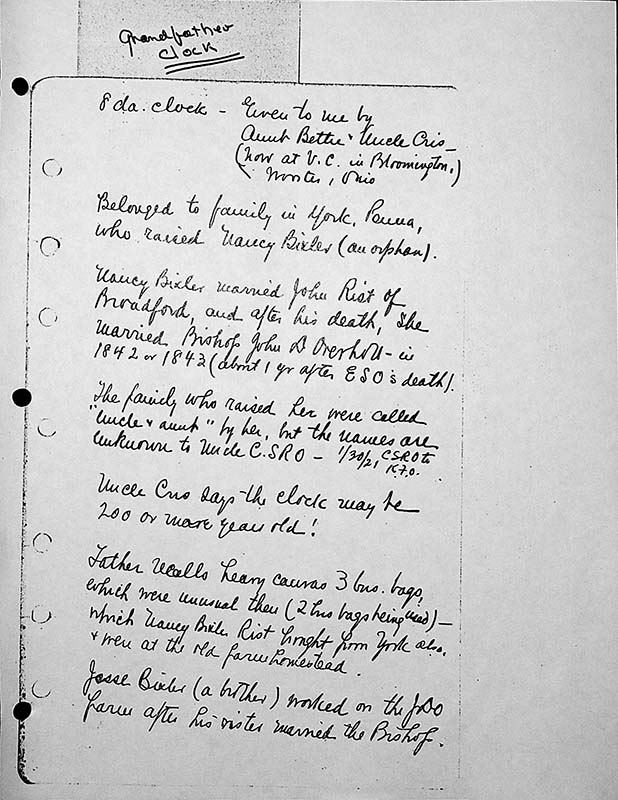 Grandfather
Clock
8 da. clock - Given to me by
Aunt Bettie & Uncle Cris -
(now at V.C. in Bloomington,)
Wooster, Ohio
Belonged to family in York, Penna,
who raised Nancy Bixler (an orphan).
Nancy Bixler married John Rist of
Broadford, and after his death, she
married Bishop John D Overholt - in
1842 or 1843 (about 1 yr after ESO's death).
The family who raised her were called
"Uncle & aunt" by her, but the names are
unknown to Uncle C.SRO - 1/30/21 CSRO to
K.F.O.
Uncle Cris says the clock may be
200 or more years old!
Father recalls heavy canvas 3 bus. bags,
which were unusual then (2 bus bags being used) -
which Nancy Bixler Rist brought from York also,
& were at the old farm homestead.
Jesse Bixler (a brother) worked on the JDO
farm after his sister married the Bishop.